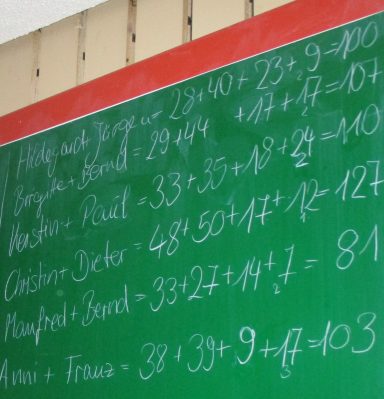 Hildegard + Jürgen = 28+40+23+9=100
Birgitte + Bernd = 29+44 +17+17=107
Kerstin + Paul = 33+35+18+24=110
Christin + Dieter = 48+50+17+12=127
Manfred + Bernd = 33+27+14+7= 81
Anni + Franz = 38+39+9+17=103